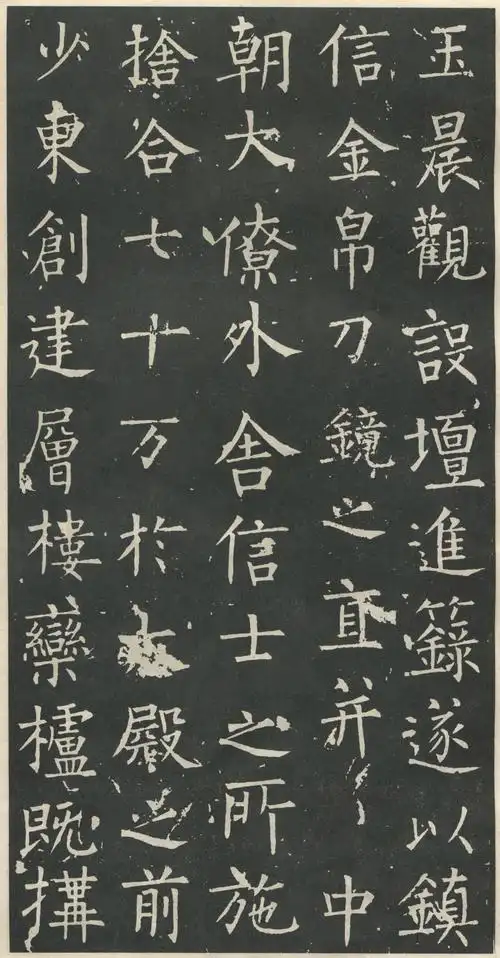 玉晨觀設壇進籙遂以鎮
信金帛刀鏡之直并中
朝大僚外舍信士之所施
捨合七十万於大殿之前
少東創建層樓欒櫨既搆